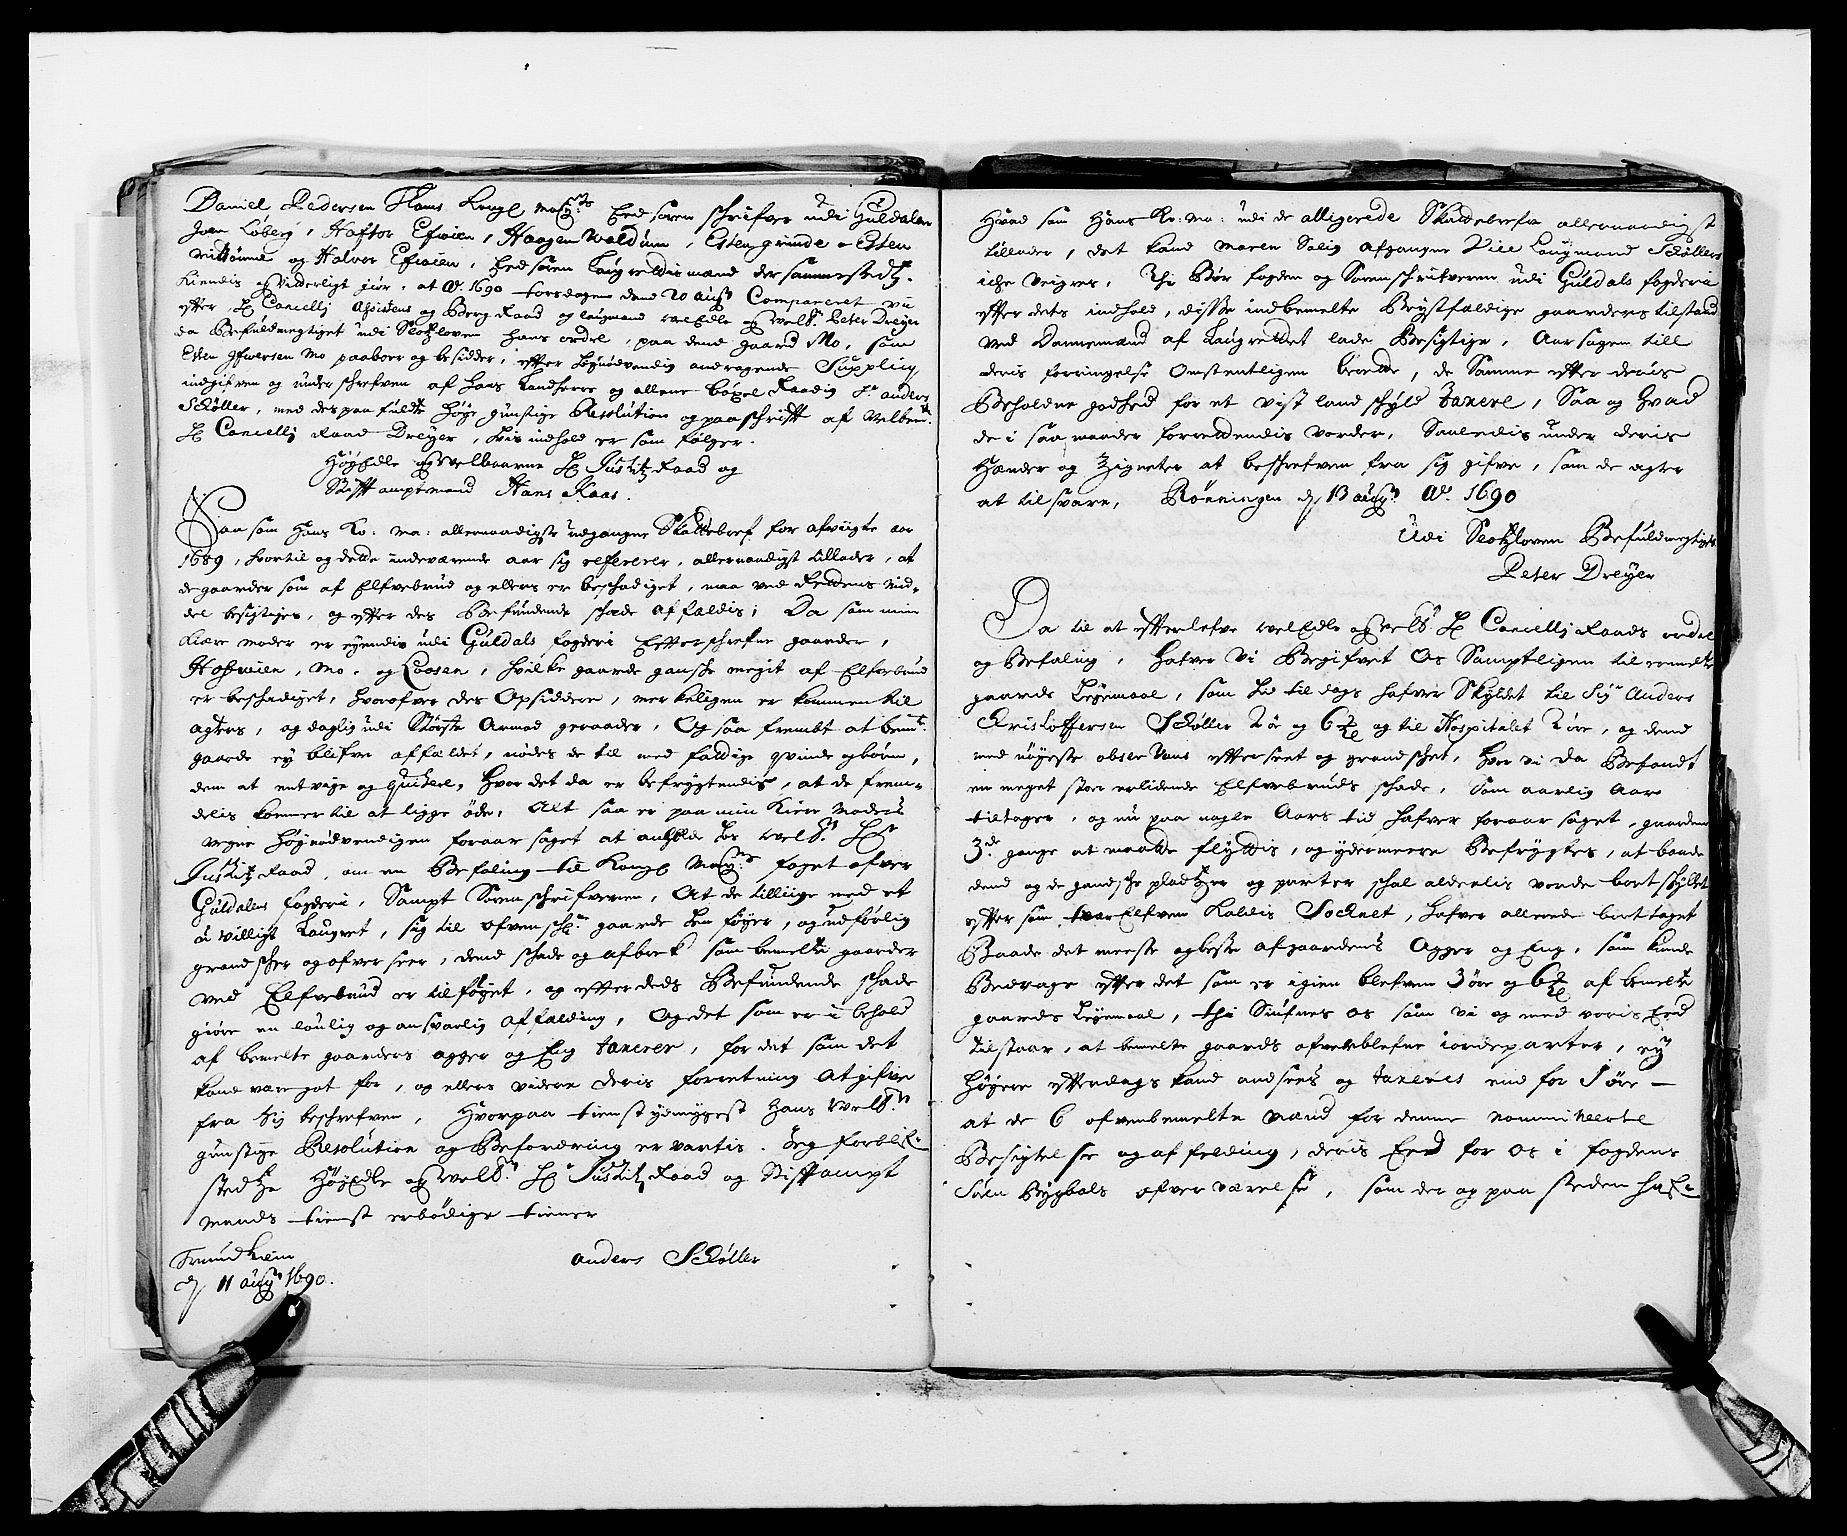 Daniel Pedersen Hans Kongl May:ts Eedsoren schrifver udi Guldalen
Joen Løberg, Haftor Efvien, Haagen Woldum, Esten grinde, Esten
og Halvor Efvien, Eedsoren Laugrettismænd der sammestedtz.
Kiendis og Vitterligt giør, at Ao. 1690 torsdagen dend 20 aug: Compareret vii
efter Hr Cancellj Assistens og Berg Raad og laugmand welEdle og welb:n Peter Dreyer
da Befuldmegtiget udi Slotzloven hans ordre, paa dend gaard Mo, som
Esten Mo paaboer og besidder, efter høynødvendig andragende Supplicq
indgifven og underschrefven af hans Landherre og allene bøxel Raadig Sr. anders
Schøller, med des paafuldte høyegunstige Resolution og paaschrifft af Velbemte
Hr Cancellj Raad Dreyer, hvis indhold er som følger.
HøyEdle og welbaarne Hr Justitz Raad og
Stifftamptmand Hans Kaas.
Saasom Hans Ko: Ma: allernaadigste udgangne Skattebref for afvigte aar
1689, hvortil og dette indeværende aar sig refererer, allernaadigst tillader, at
de gaarder som af Elfvebrud og ellers er beschadiget, maa ved Rettens Mid-
del besigtiges, og efter des Befundende schade affældis; Da som min
Kiære moder er eyendis udi Guldals fogderi Effterschrefne gaarder,
Hofsvien, Mo, og Loesen, hvilke gaarde gansche megit af Elfvebrud
er beschadiget, hvorofver des Opsiddere, merkeligen er kommen til
agters, og daglig udi Største Armod geraader, Og saa fremt at bemte
gaarde ey blifve affældet, nødes de til med fattige qvinde og børn,
dem at entvige og quitere, hvor det da er befrygtendis, at de frem-
delis kommer til at ligge øde, Alt saa er paa min Kiere Moders
vegne høynødvendigen foraarsaget at anholde hos welb:n Hr
Justitz Raad, om en Befaling til Kongl May:ts foget ofver
Guldalens fogderi, Sampt Sorenschrifveren, At de tillige med et
uvilligt Laugret, sig til ofvenschr: gaarde hen føyer, og udførlig
grandscher og ofverseer, dend schade og afbrek som bemelte gaarder
ved Elfvebrud er tilføyet, og effter deds Befundende schade
giøre en loulig og ansvarlig affælding, og det som er i behold
af bemelte gaarders agger og Eng taxerer, for det som det
kand være got for, og ellers videre deris forretning at gifve
fra sig beschrefven, Hvorpaa tienstydmygest Hans Welb:n
gunstige Resolution og Befordring erwartis. Jeg forblif-
stedtze HøyEdle og Welb:n Hr Justitz Raad og Stiftampt
mands tienst erbødige tiener
Trundhiem
d. 11 aug: 1690.
anders Schøller
Hvad som Hans Ko: Ma: udi de alligerede Skattebrefve allernaadigst
tillader, det kand Maren Salig afgangne Vice Laugmand Schøllers
iche veigres, Thi Bør fogden og Sorenschrifveren udi Guldals fogderie
efter dets indhold, disse indbemelte Brøstfældige gaarders tilstand
ved Dannemænd af Laugrettet lade Besigtige, Aarsagen till
deris forringelse Omstentligen berette, de Samme efter deris
Beholdne godhed for et vist landschyld taxere, Saa og hvad
de i saa maader forrettendis vorder, Saaledis under deris
Hænder og Zigneter at beschrefven fra sig gifve, som de agter
at tilsvare, Rønningen d. 13 aug: Ao. 1690
Udi Slotzloven Befuldmegtiget
Peter Dreyer
Da til at efterlefve welEdle og welb: Hr Cancellj Raads ordre
og Befaling, hafver Vi Begifvet Os Samptligen til ermelte
gaards Leyemaal, som hid til dags hafver Skyldet til Sigr Anders
Christoffersen Schøller 2 ør og 6 og til Hospitalet 2 øre, og dend
med nøyeste observans efterseet og grandschet, hvor vi da Befandt
en meget stor erlidende Elfvebruds schade, som aarlig Aars
tiltager, og nu paa nogle Aars tid hafver foraarsaget, gaarden
3de gange at maatte flyttis, og ydermeere Befrygtes, at baade
dend og de gandsche pladtzer og parter schal aldelis vorde bortskyllet
efter som Elfven kaldis Sochnet, hafver allerede borttaget
Baade det meeste og beste af gaardens Agger og Eng, som kunde
Bedrage efter det som er igien blefven 3 øre og 6 af bemelte
gaards Leyemaal, thi Siufnes os som vi og med voris Eed
tilstaar, at bemelte gaards ofverblefne iordeparter, ey
høyere efter dags kand ansees og taxeres end for 1 øre -
at de 6 ofvenbemelte mænd for denne nominerte
Besigtelse og affelding, deris Eed for os i fogdens
Søfren Bygbals ofverværelse, som der og paa steden haf-